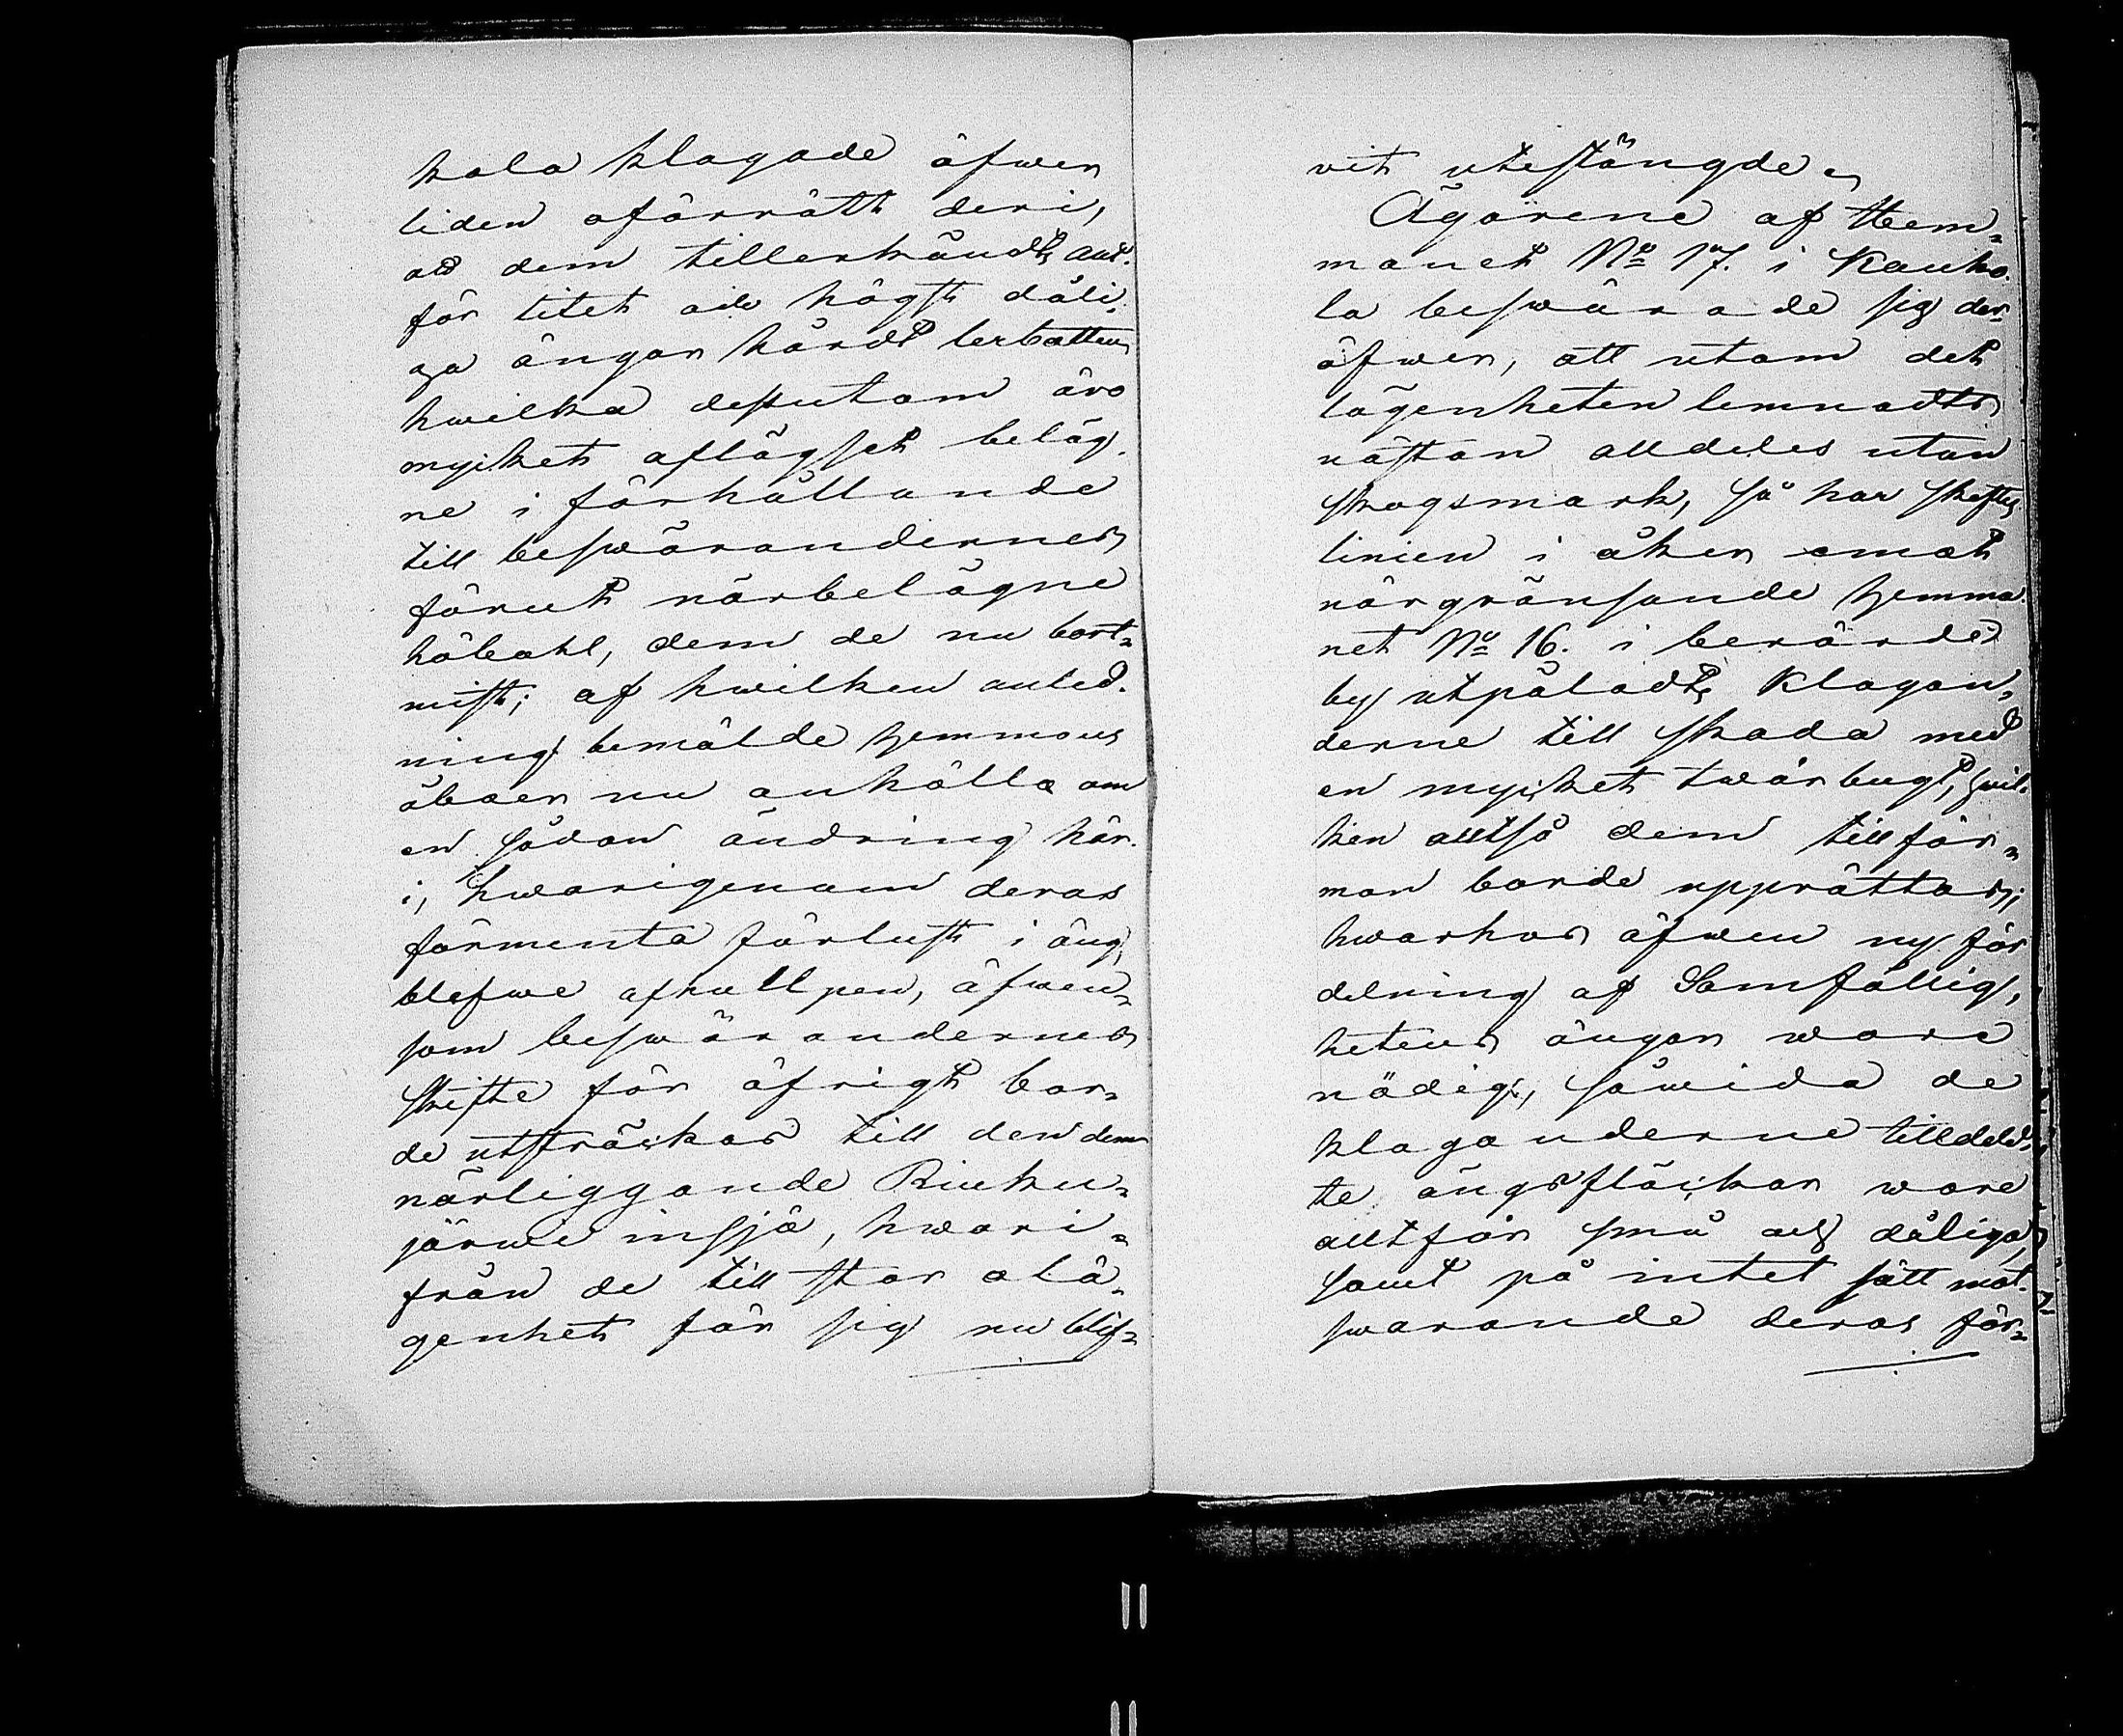 kola klagade öfwer
liden oförrätt deri,
att dem tillerkändts allt
för litet och högst dåli-
ga ängar hårdt lerbotten
hwilka dessutom äro
mycket aflägset beläg-
ne i förhållande
till beswäranderner
förut närbelägne
höbohl, dem de nu bort-
mist; af hwilken anled-
ning bemälde hemmans
åboer nu anhålla om
en sådan ändring här-
i, hwarigenom deras
förmenta förlust i äng
blefwe afhullpen, äfwen-
som beswäranderner
skifte för öfrigt bor-
de utsträckas till den dem
närliggande Riuku-
järwi insjö, hwari-
från de till stor olä-
genhet för sig nu blif-
vit utestängde.
Ägorene af Hem-
manet No 17. i Kauko-
la beswärade sig der-
öfwer, att utom det
lägenheten lemnadts
nästan alldeles utan
skogsmark, så har skiftes
linien i åker emot
närgränsande hemma-
net No 16. i berörde
by utpåladts klagan-
derne till skada med
en mycket twär bugt, hwil-
ken alltså dem till för-
mon borde upprättas;
hwarhos äfwen ny för
delning af Samfällig-
hetens ängar wore
nödig, såwida de
klaganderne tilldelad-
te ängsfläckar wore
alltför små och dåliga,
samt på intet sätt mot-
swarande deras för-